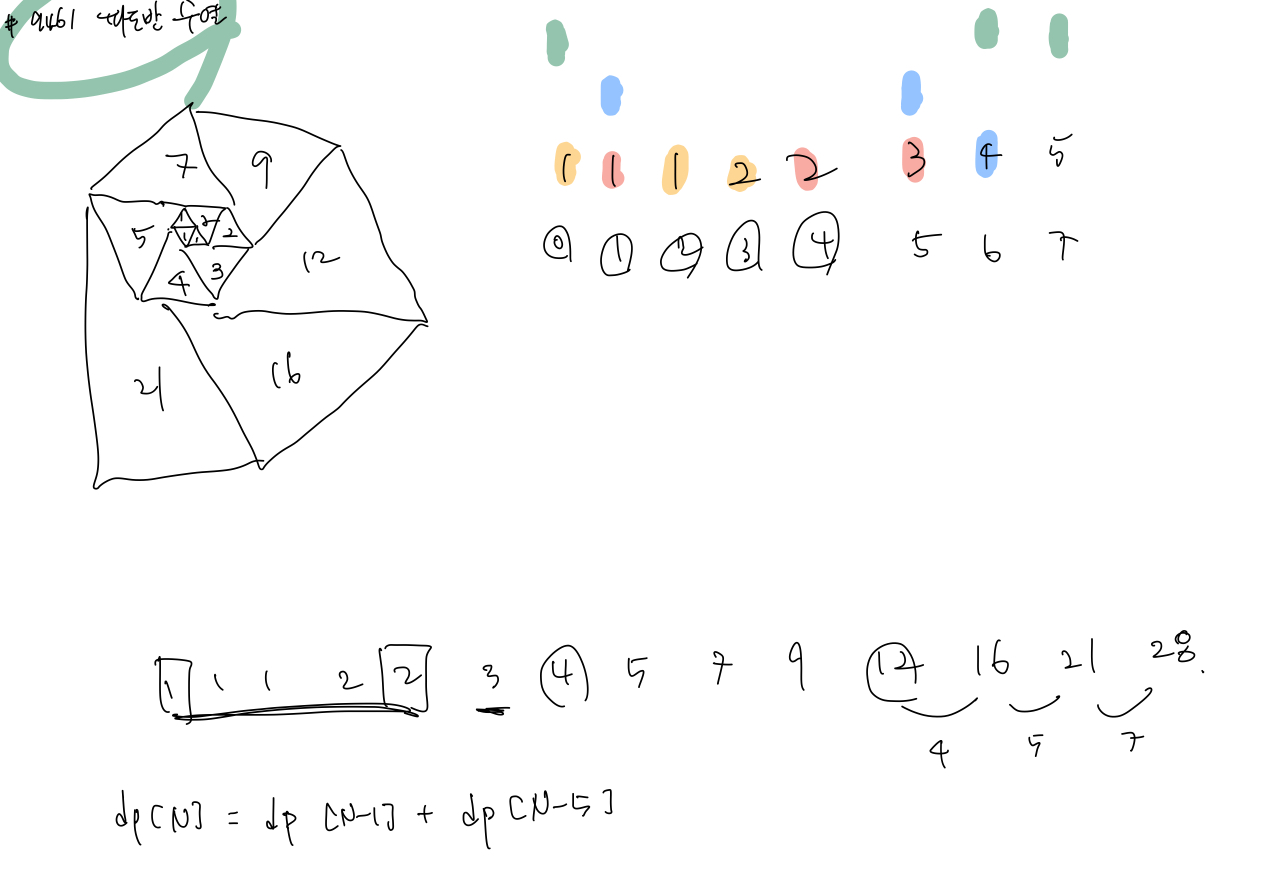 # 9461 파도반 수열
7 9
5 1 2 2 12
1 1
4 3
21 16
1 1 1 2 2 3 4 5
0 1 2 3 4 5 6 7
1 1 1 2 2 3 4 5 7 9 12 16 21 28.
4 5 7
dp[N] = dp [N-1] + dp [N-5]